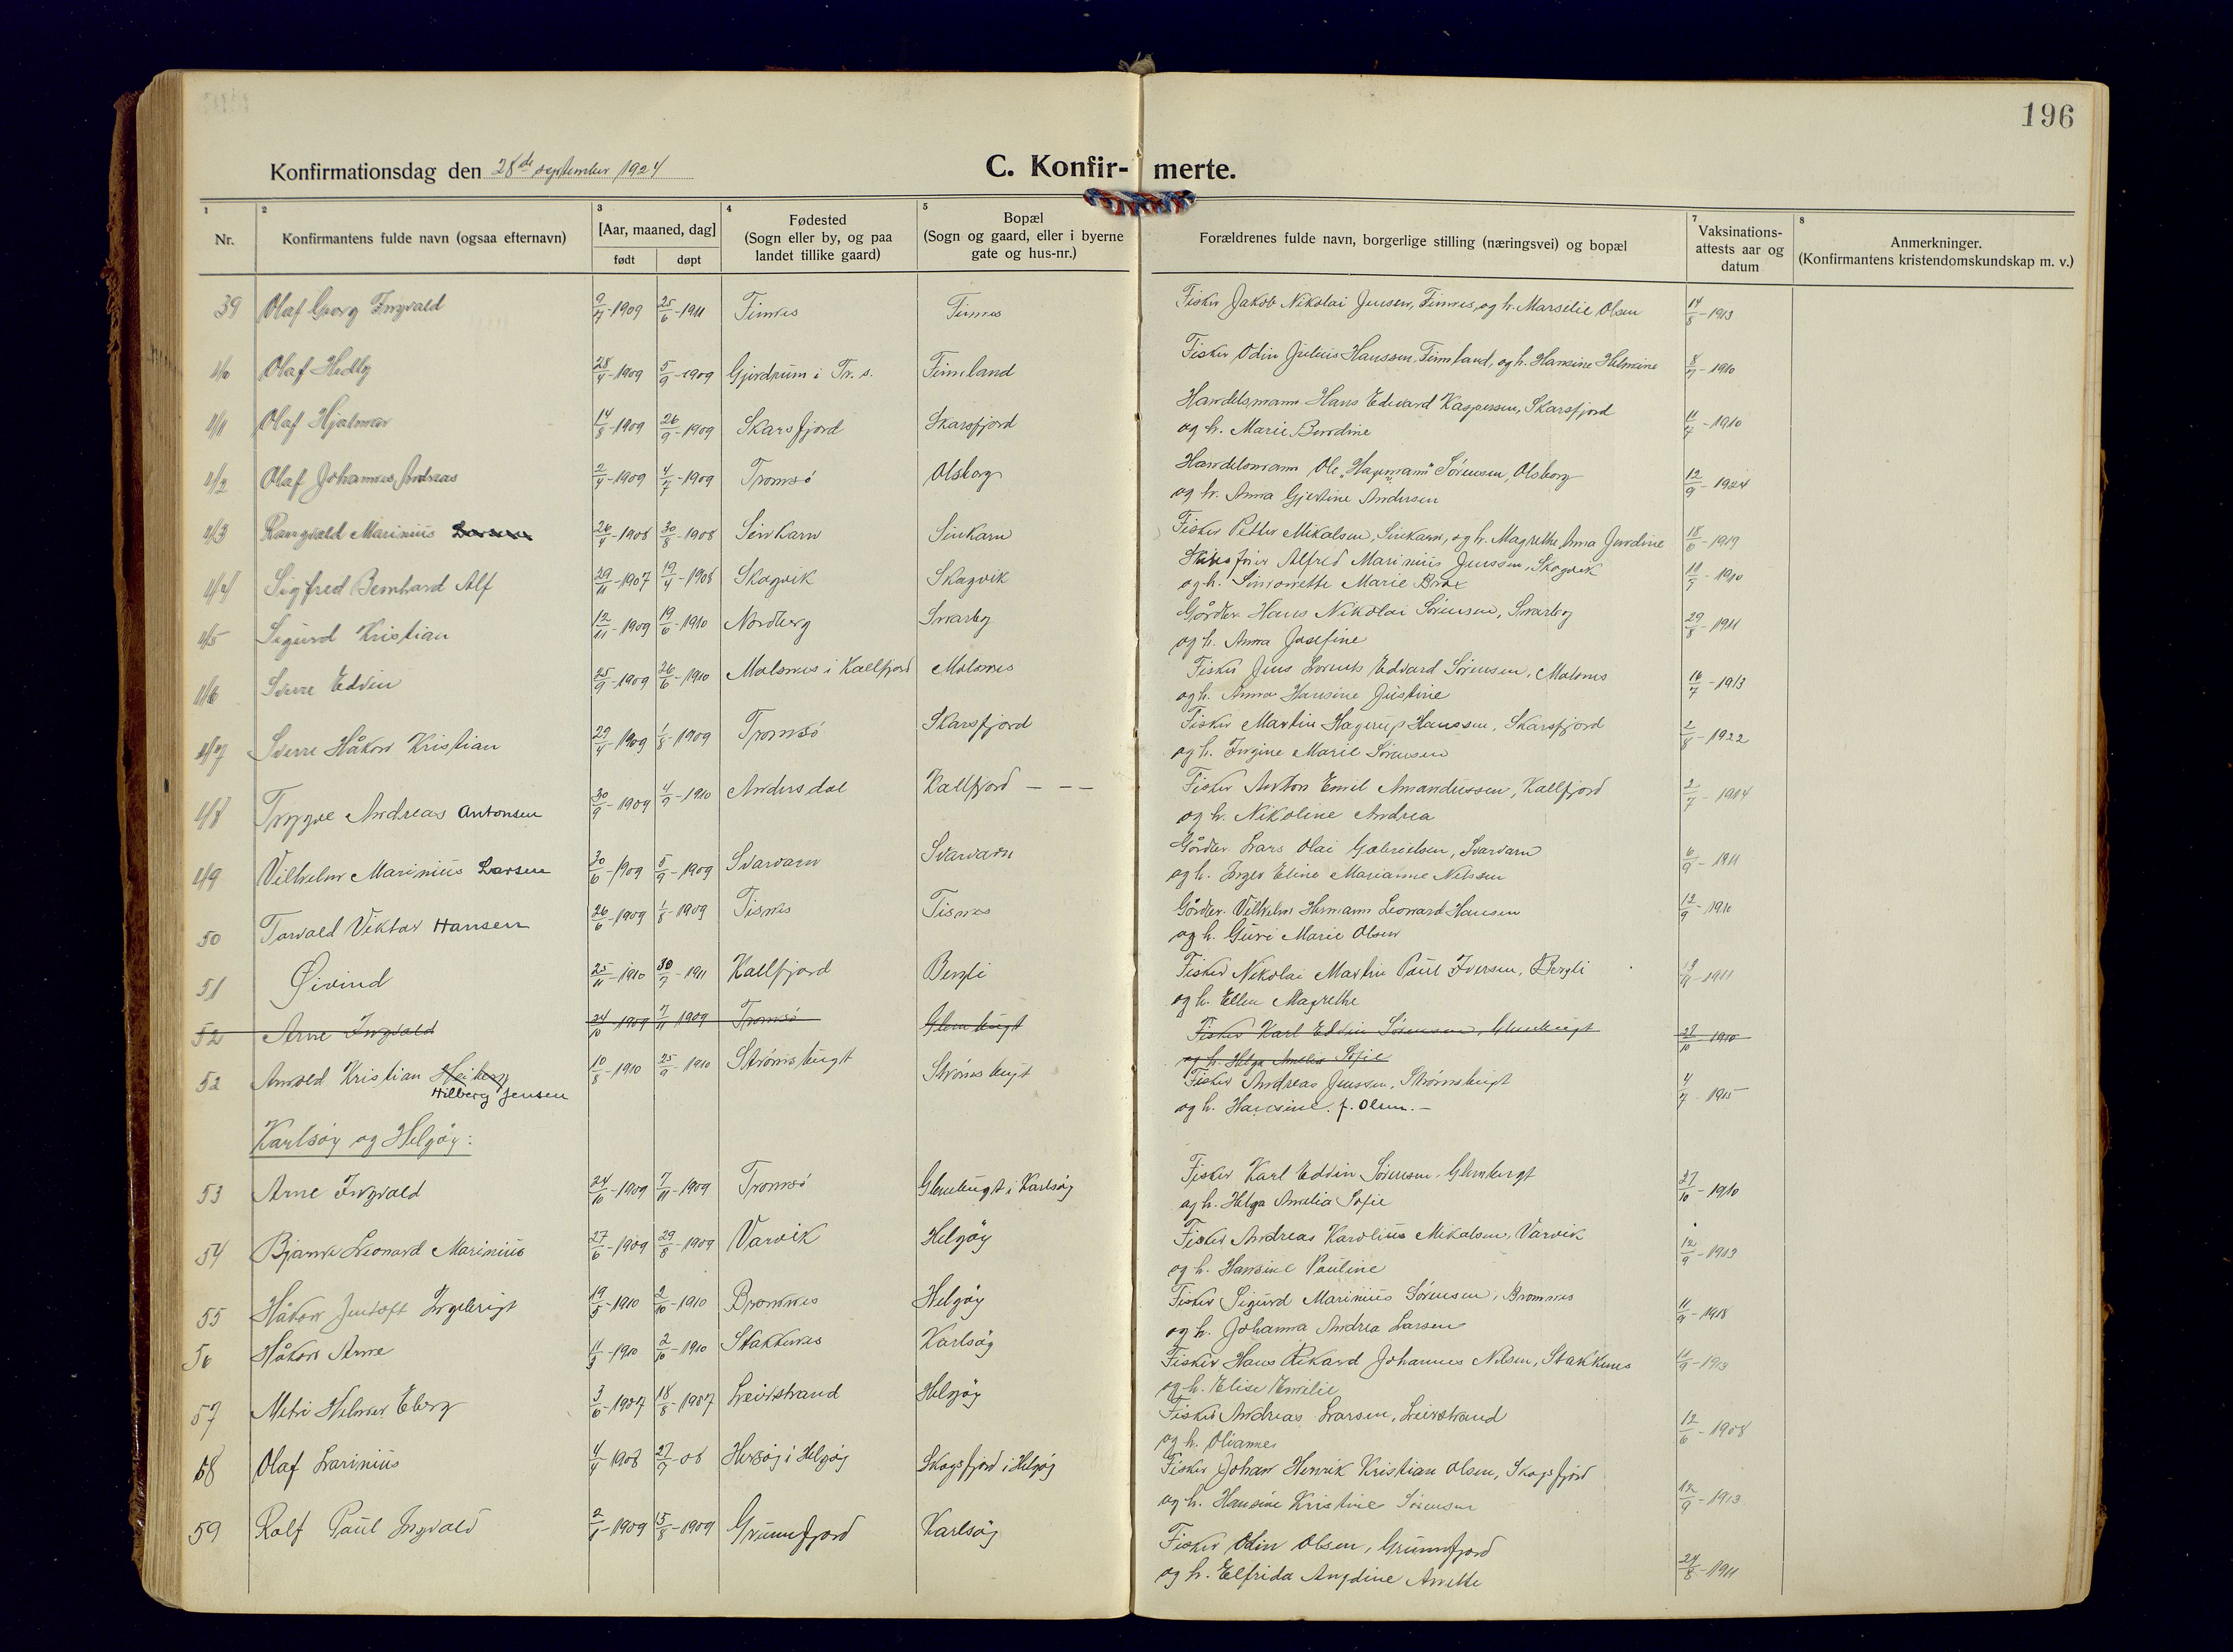 196
Konfirmationsdag den 28de september 1924
C. Konfir- merte.
1 2 3 4 5 7 8
Nr.
Konfirmantens fulde navn (ogsaa efternavn)
[Aar, maaned, dag]
født døpt
Fødested
(Sogn eller by, og paa
landet tillike gaard)
Bopæl
(Sogn og gaard, eller i byerne
gate og hus-nr.)
Forældrenes fulde navn, borgerlige stilling (næringsvei) og bopæl
Vaksinations-
attests aar og
datum
Anmerkninger.
(Konfirmantens kristendomskundskap m. v.)
39 Olaf Georg Ingvald 9/7-1909 25/6-1911 Finnes Finnes Fisker Jakob Nikolai Jensen, Finnes, og h. Marselie Olsen 14/8-1913
40 Olaf Hedly 28/4-1909 5/9-1909 i Tr. s. Finnland Fisker Odin Julius Hanssen, Finnland, og h. Hansine Helmine 8/7-1910
41 Olaf Hjalmar 14/8-1909 26/9-1909 Skarsfjord Skarsfjord Handelsmann Hans Edward Kaspersen, Skarsfjord 11/7-1910
og h. Marie Berdine
42 Olaf Johannes Andreas 2/4-1909 4/7-1909 Tromsö Olsborg Handelsmann Ole "Hagemann" Sörensen, Olsborg 12/9-1924
og h. Anna Gjertine Andersen
43 Rangvald Marinius Larsen 26/4-1908 30/8-1908 Sinkarn Sinkarn Fisker Petter Mikalsen, Sinkarn, og h. Magrethe Anna Jordine 18/6-1919
44 Sigfred Bernhard Alf 29/11-1907 19/4-1908 Skogvik Skogvik Alfred Marinius Jenssen, Skogvik 11/7-1910
og h. Simonette Marie Brox
45 Sigurd Kristian 12/11-1909 19/6-1910 Nordberg Snarby Gårdbr. Hans Nikolai Sörensen, Snarby 29/8-1911
og h. Anna Josefine
46 Sverre Edvin 25/9-1909 26/6-1910 Malsnes i Kallfjord Malsnes Fisker Jens Lorents Edvard Sörensen, Malsnes 16/7-1913
og h. Anna Hansine Justine
47 Sverre Håkon Kristian 29/4-1909 1/8-1909 Tromsö Skarsfjord Fisker Martin Hagerup Hanssen, Skarsfjord 2/8-1922
og h. Ingine Marie Sörensen
48 Trygve Andreas Antonsen 30/9-1909 4/9-1910 Andersdal Kallfjord - - - Fisker Anton Emil Amandussen, Kallfjord 2/7-1914
og h. Nikoline Andrea
49 Vilhelm Marinius Larsen 30/6-1909 5/9-1909 Svarvarn Svarvarn Gårdbr. Lars Olai Gabrielsen, Svarvarn 6/9-1911
og h. Inger Eline Marianne Nilssen
50 Torvald Viktor Hansen 26/6-1909 1/8-1909 Tisnes Tisnes Gårdbr. Vilhelm Hermann Leonard Hansen 12/9-1910
og h. Guri Marie Olsen
51 Øivind 25/11-1910 30/7-1911 Kallfjord Bergli Fisker Nikolai Martin Paul Iversen, Bergli 1911
og h. Ellen Magrethe
52 Arne Ingvald 24/10 1909 7/11 1909 Tromsö Glembugt Fisker Karl Edvin Sörensen, Glembugt 27/10 1910
og h. Helga Amelia Sofie
52 Arnold Kristian Heiberg 10/8-1910 25/9-1910 Strömsbugt Strömsbugt Fisker Andreas Jenssen, Strömsbugt 4/7-1915
Hilberg Jensen og h. Hansine. f. Olsen. -
Karlsöy og Helgöy:
53 Arne Ingvald 24/10-1909 7/11-1909 Tromsö Glembugt i Karlsöy Fisker Karl Edvin Sörensen, Glembugt 27/10-1910
og h. Helga Amelia Sofie
54 Bjarne Leonard Marinius 27/6-1909 29/8-1909 Varvik Helgöy Fisker Andreas Karolius Mikalsen, Varvik 12/9-1913
og h. Hansine Pauline
55 Håkon Jentoft Ingebrigt 19/5-1910 2/10-1910 Bromnes Helgöy Fisker Sigurd Marinius Sörensen, Bromnes 11/9-1918
og h. Johanna Andrea Larsen
56 Håkon Arne 11/3-1910 2/10-1910 Stakknes Karlsöy Fisker Hans Rikard Johannes Nilsen, Stakknes 11/9-1913
og h. Elise Emilie
57 Metri Helmer Eberg 3/6-1907 18/8-1907 Leirstrand Helgöy Fisker Andreas Larsen, Leirstrand 12/6-1908
og h. Olianna
58 Olaf Larinius 4/4-1908 27/9-08 i Helgöy Skogsfjord i Helgöy Fisker Johan Henrik Kristian Olsen, Skogsfjord 12/9-1913
og h. Hansine Kristine Sörensen
59 Rolf Paul Ingvald 2/1-1909 15/8-1909 Grunnfjord Karlsöy Fisker Odin Olsen, Grunnfjord 24/8-1911
og h. Elfrida Angdine Anette